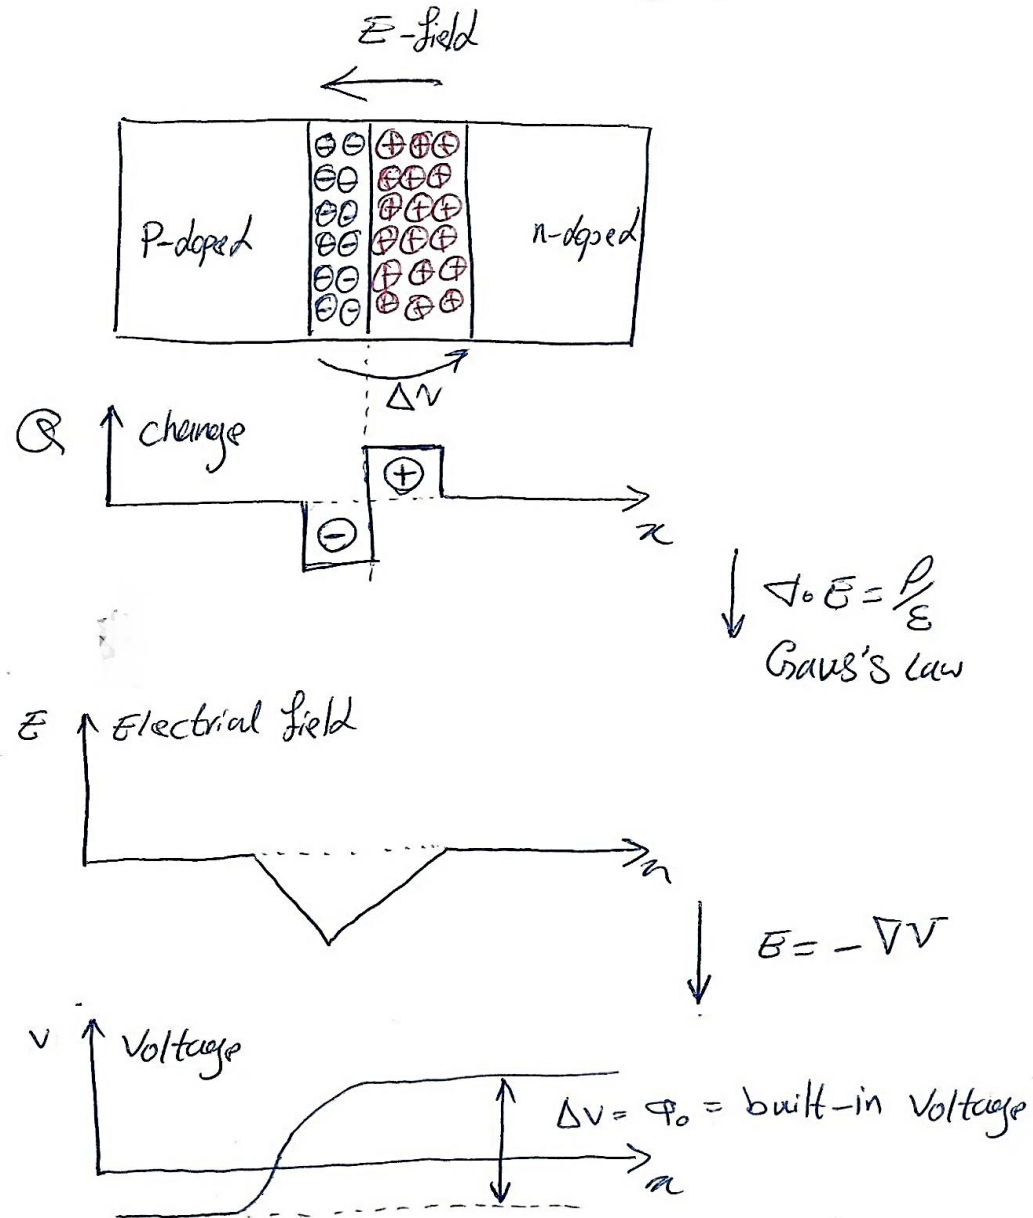 E-field
⊖⊖⊕⊕⊕
⊖⊖⊕⊕⊕
⊖⊖⊕⊕⊕
P-doped ⊖⊖⊕⊕⊕ n-doped
⊖⊖⊕⊕⊕
⊖⊖⊕⊕⊕
ΔV
Q charge
⊕
⊖
x
∇. E = ρ/ε
Gaus's Law
E Electrial field
x
E = - ∇V
V Voltage
ΔV = φ₀ = built-in Voltage
x